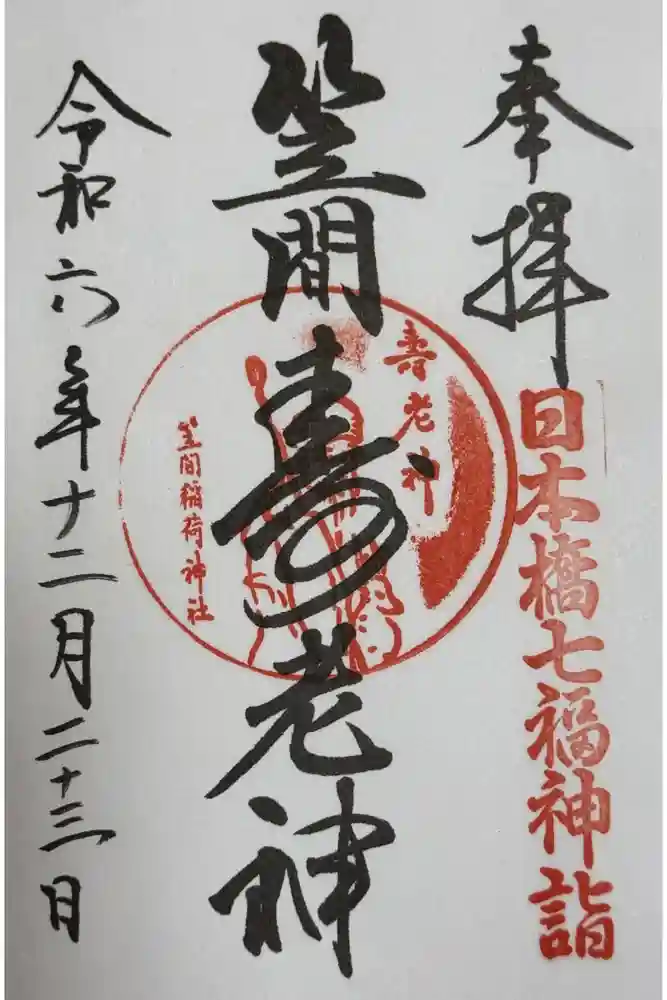 奉拝
日本橋七福神詣
笠間寿老神
寿老神
笠間稲荷神社
令和六年十二月二十三日